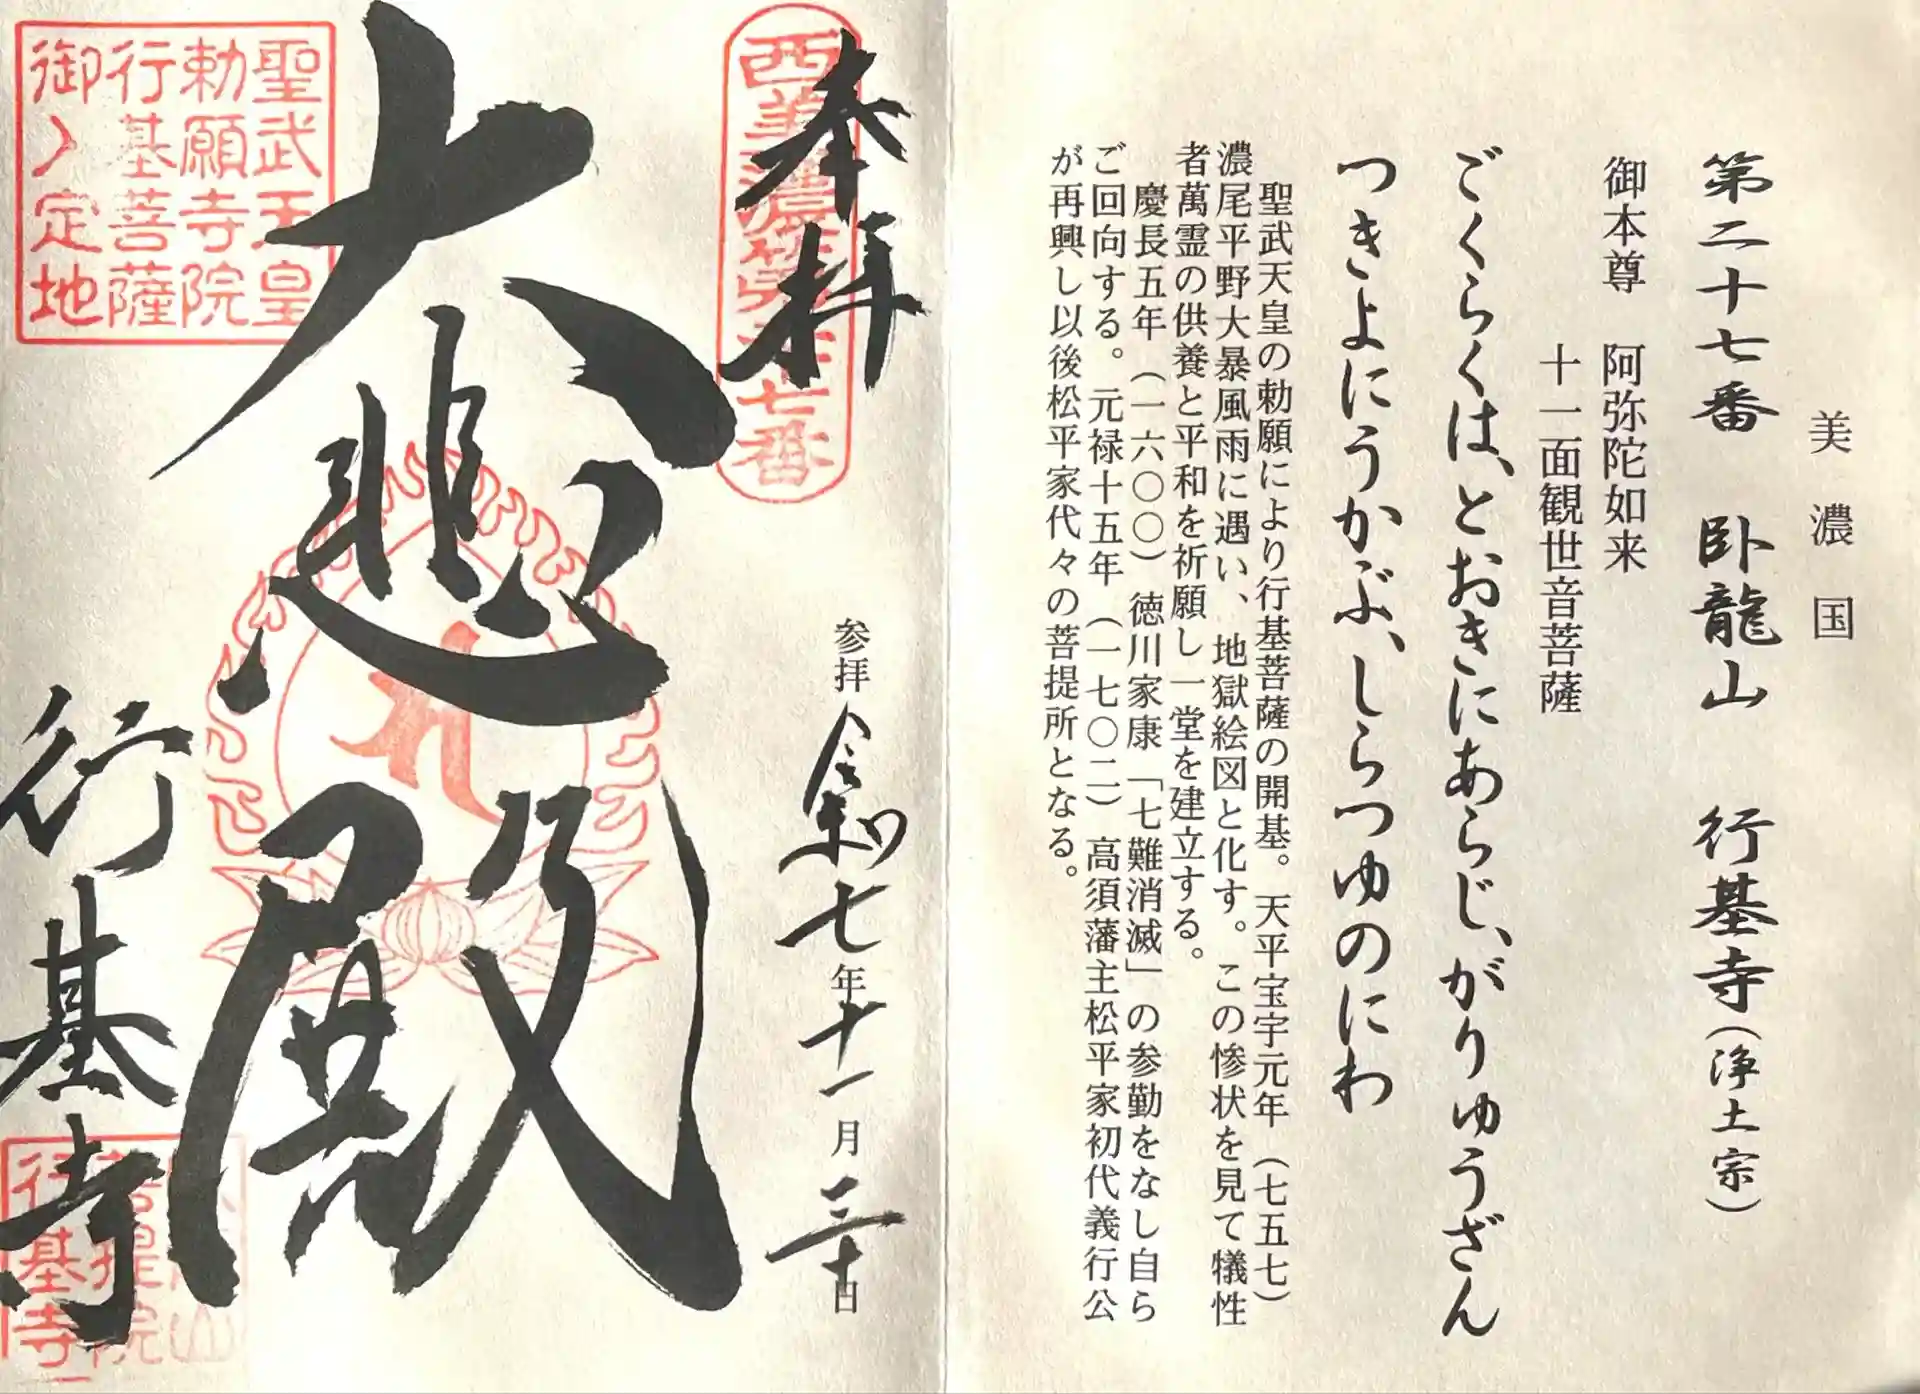 美濃国
第二十七番 臥龍山 行基寺(浄土宗)
御本尊 阿弥陀如来
十一面観世音菩薩
ごくらくは、とおきにあらじ、がりゆうざん
つきよにうかぶ、しらつゆのにわ
聖武天皇の勅願により行基菩薩の開基。天平宝宇元年(七五七)
濃尾平野大暴風雨に遇い、地獄絵図と化す。この惨状を見て犠性
者萬霊の供養と平和を祈願し一堂を建立する。
慶長五年(一六〇〇)徳川家康「七難消滅」の参勤をなし自ら
ご回向する。元禄十五年(一七〇二)高須藩主松平家初代義行公
が再興し以後松平家代々の菩提所となる。
奉拝
西美濃第二十七番
参拝 令和七年十一月三十日
大悲殿
聖武天皇
勅願寺院
行基菩薩
御入定地
行基寺
菩提院
行基寺